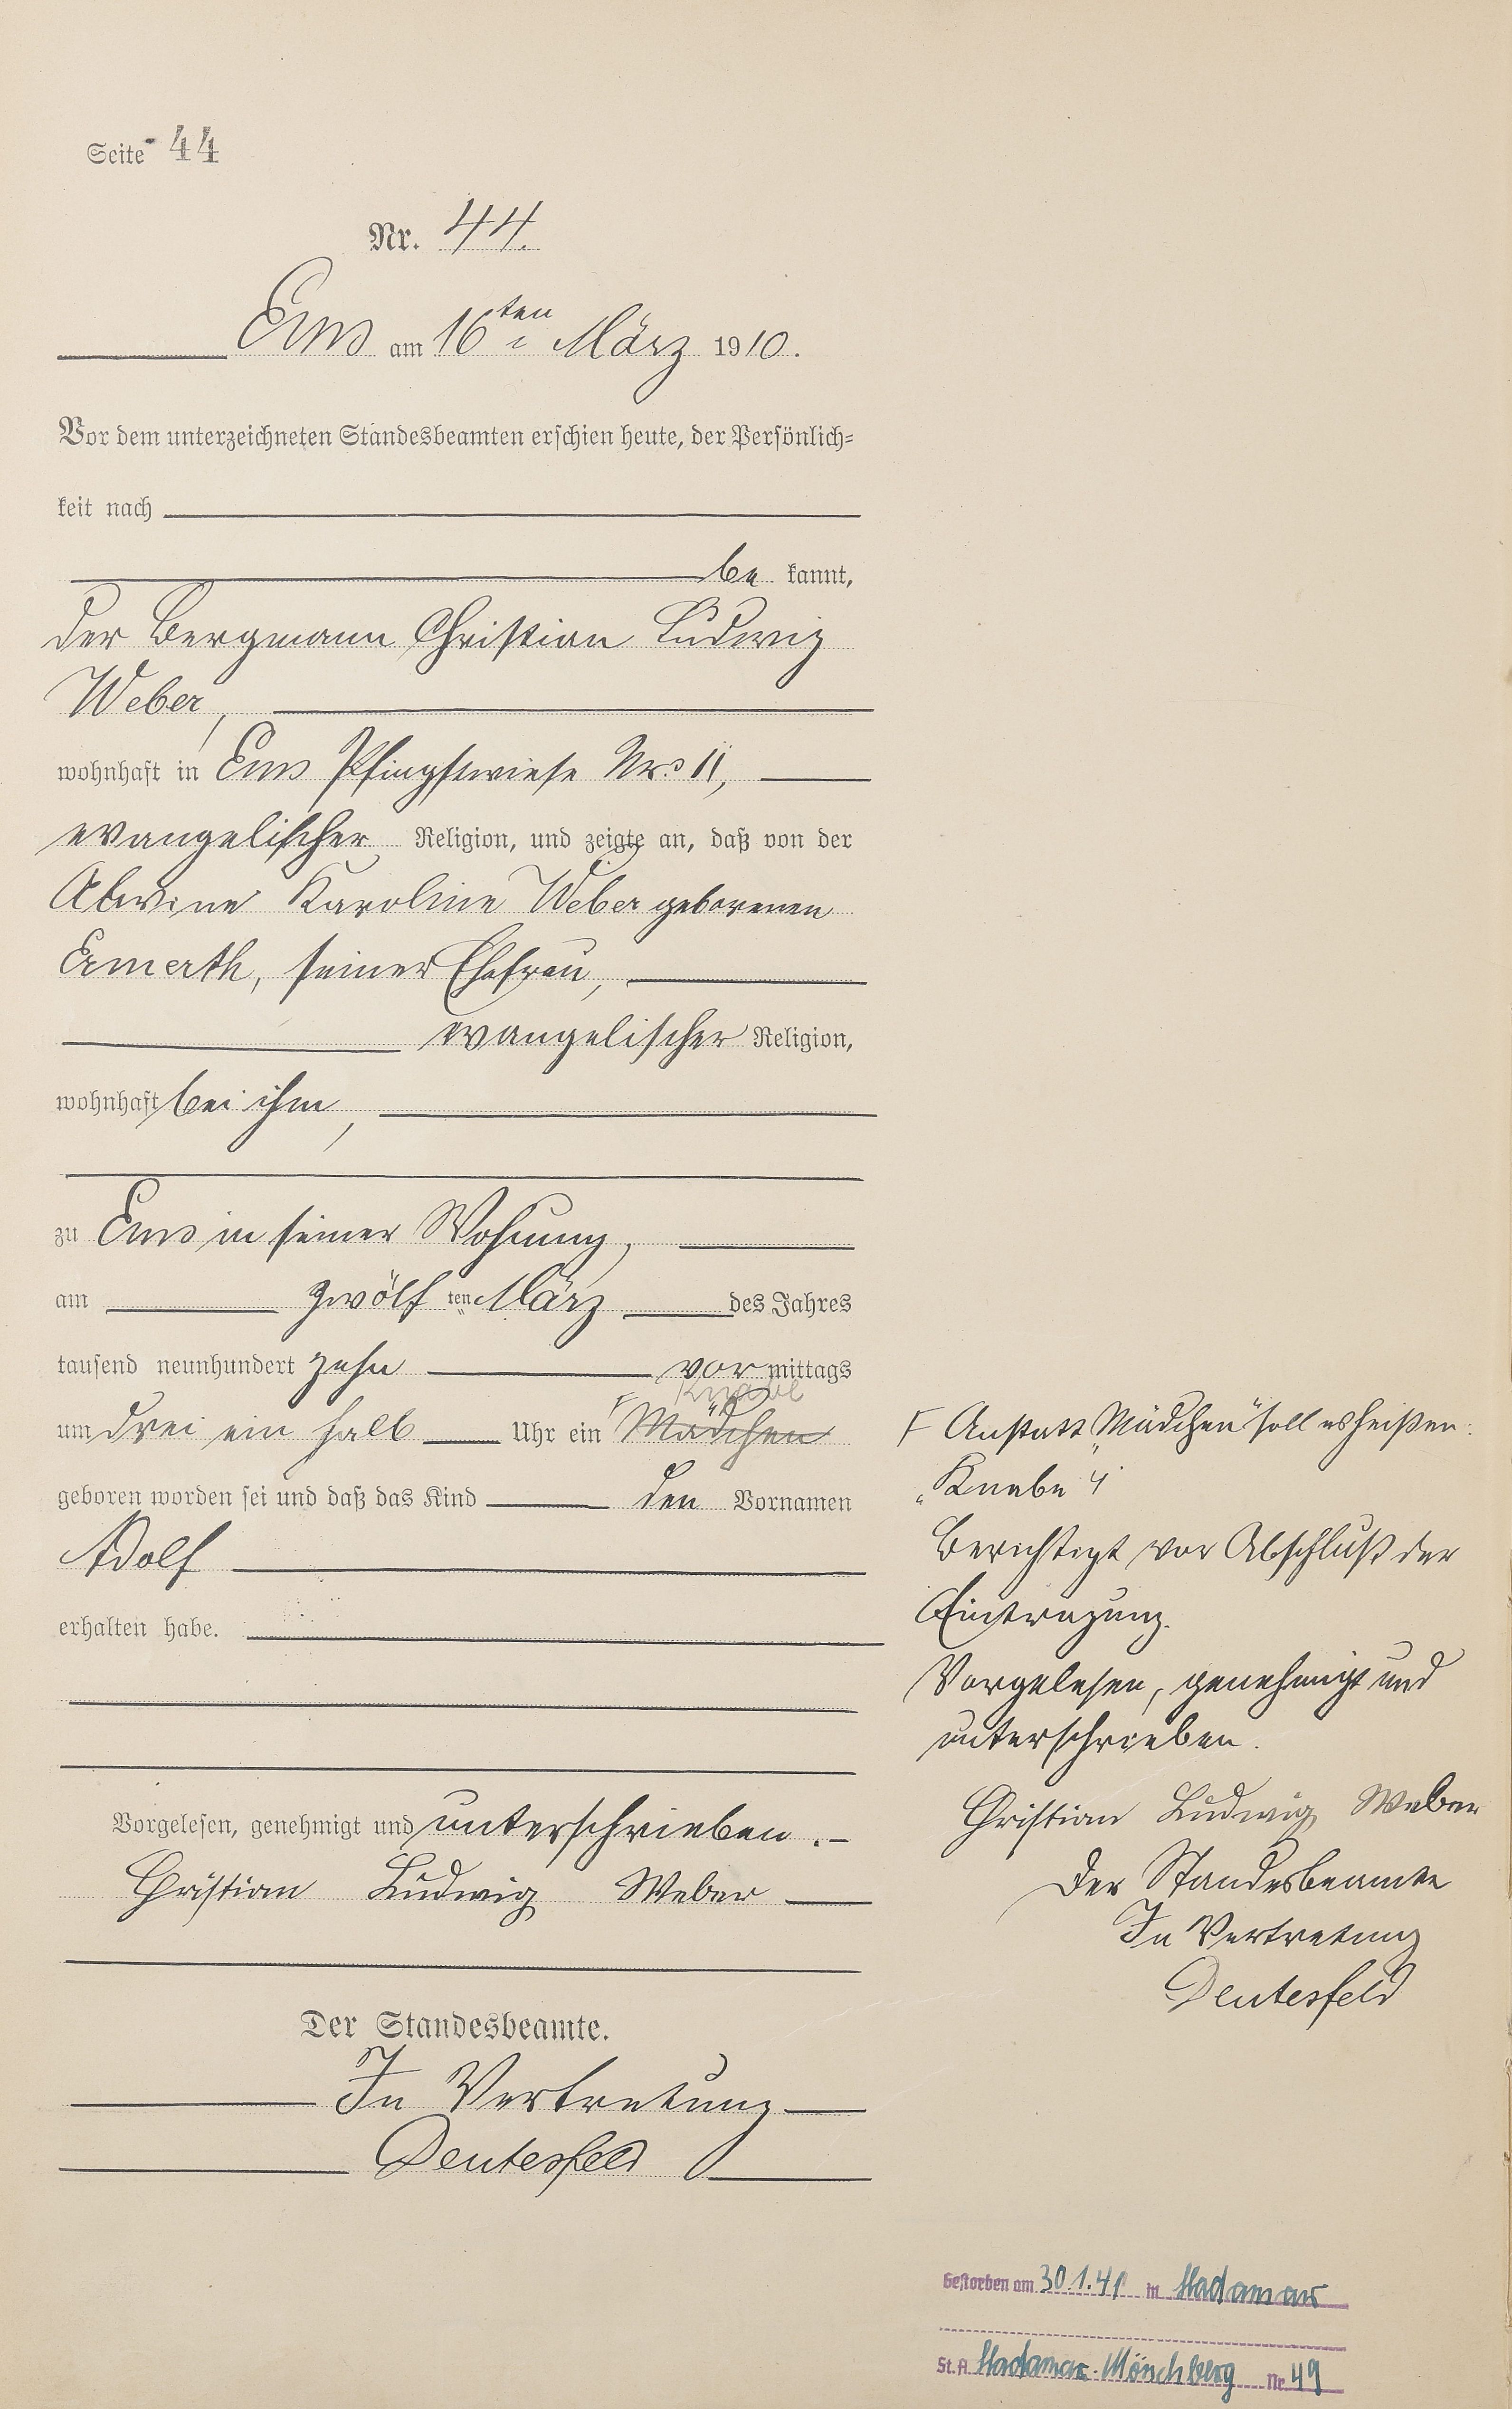 Seite 44
Nr. 44.
Ems am 16ten März 1910.
Vor dem unterzeichneten Standesbeamten erschien heute, der Persönlich-
keit nach
be kannt,
der Bergmann Christian Ludwig
Weber,
wohnhaft in Ems Pfingstwiese Nro 11,
evangelischer Religion, und zeigte an, daß von der
Alwine Karoline Weber geborenen
Ermerth, seiner Ehefrau,
evangelischer Religion,
wohnhaft bei ihm,
zu Ems in seiner Wohnung,
am zwölf ten März des Jahres
tausend neunhundert zehn vor mittags
Knabe
um drei ein halb Uhr ein Mädchen
geboren worden sei und daß das Kind den Vornamen
Adolf
erhalten habe.
Vorgelesen, genehmigt und unterschrieben.
Christian Ludwig Weber
Der Standesbeamte.
In Vertretung
Deutesfeld
Anstatt „Mädchen" soll es heißen:
„Knabe"
Berichtigt vor Abschluß der
Eintragung.
Vorgelesen, genehmigt und
unterschrieben.
Christian Ludwig Weber
Der Standesbeamte
In Vertretung
Deutesfeld
Gestorben am 30.1.41 in Hadamar
St.A. Hadamar-Mönchberg Nr 49